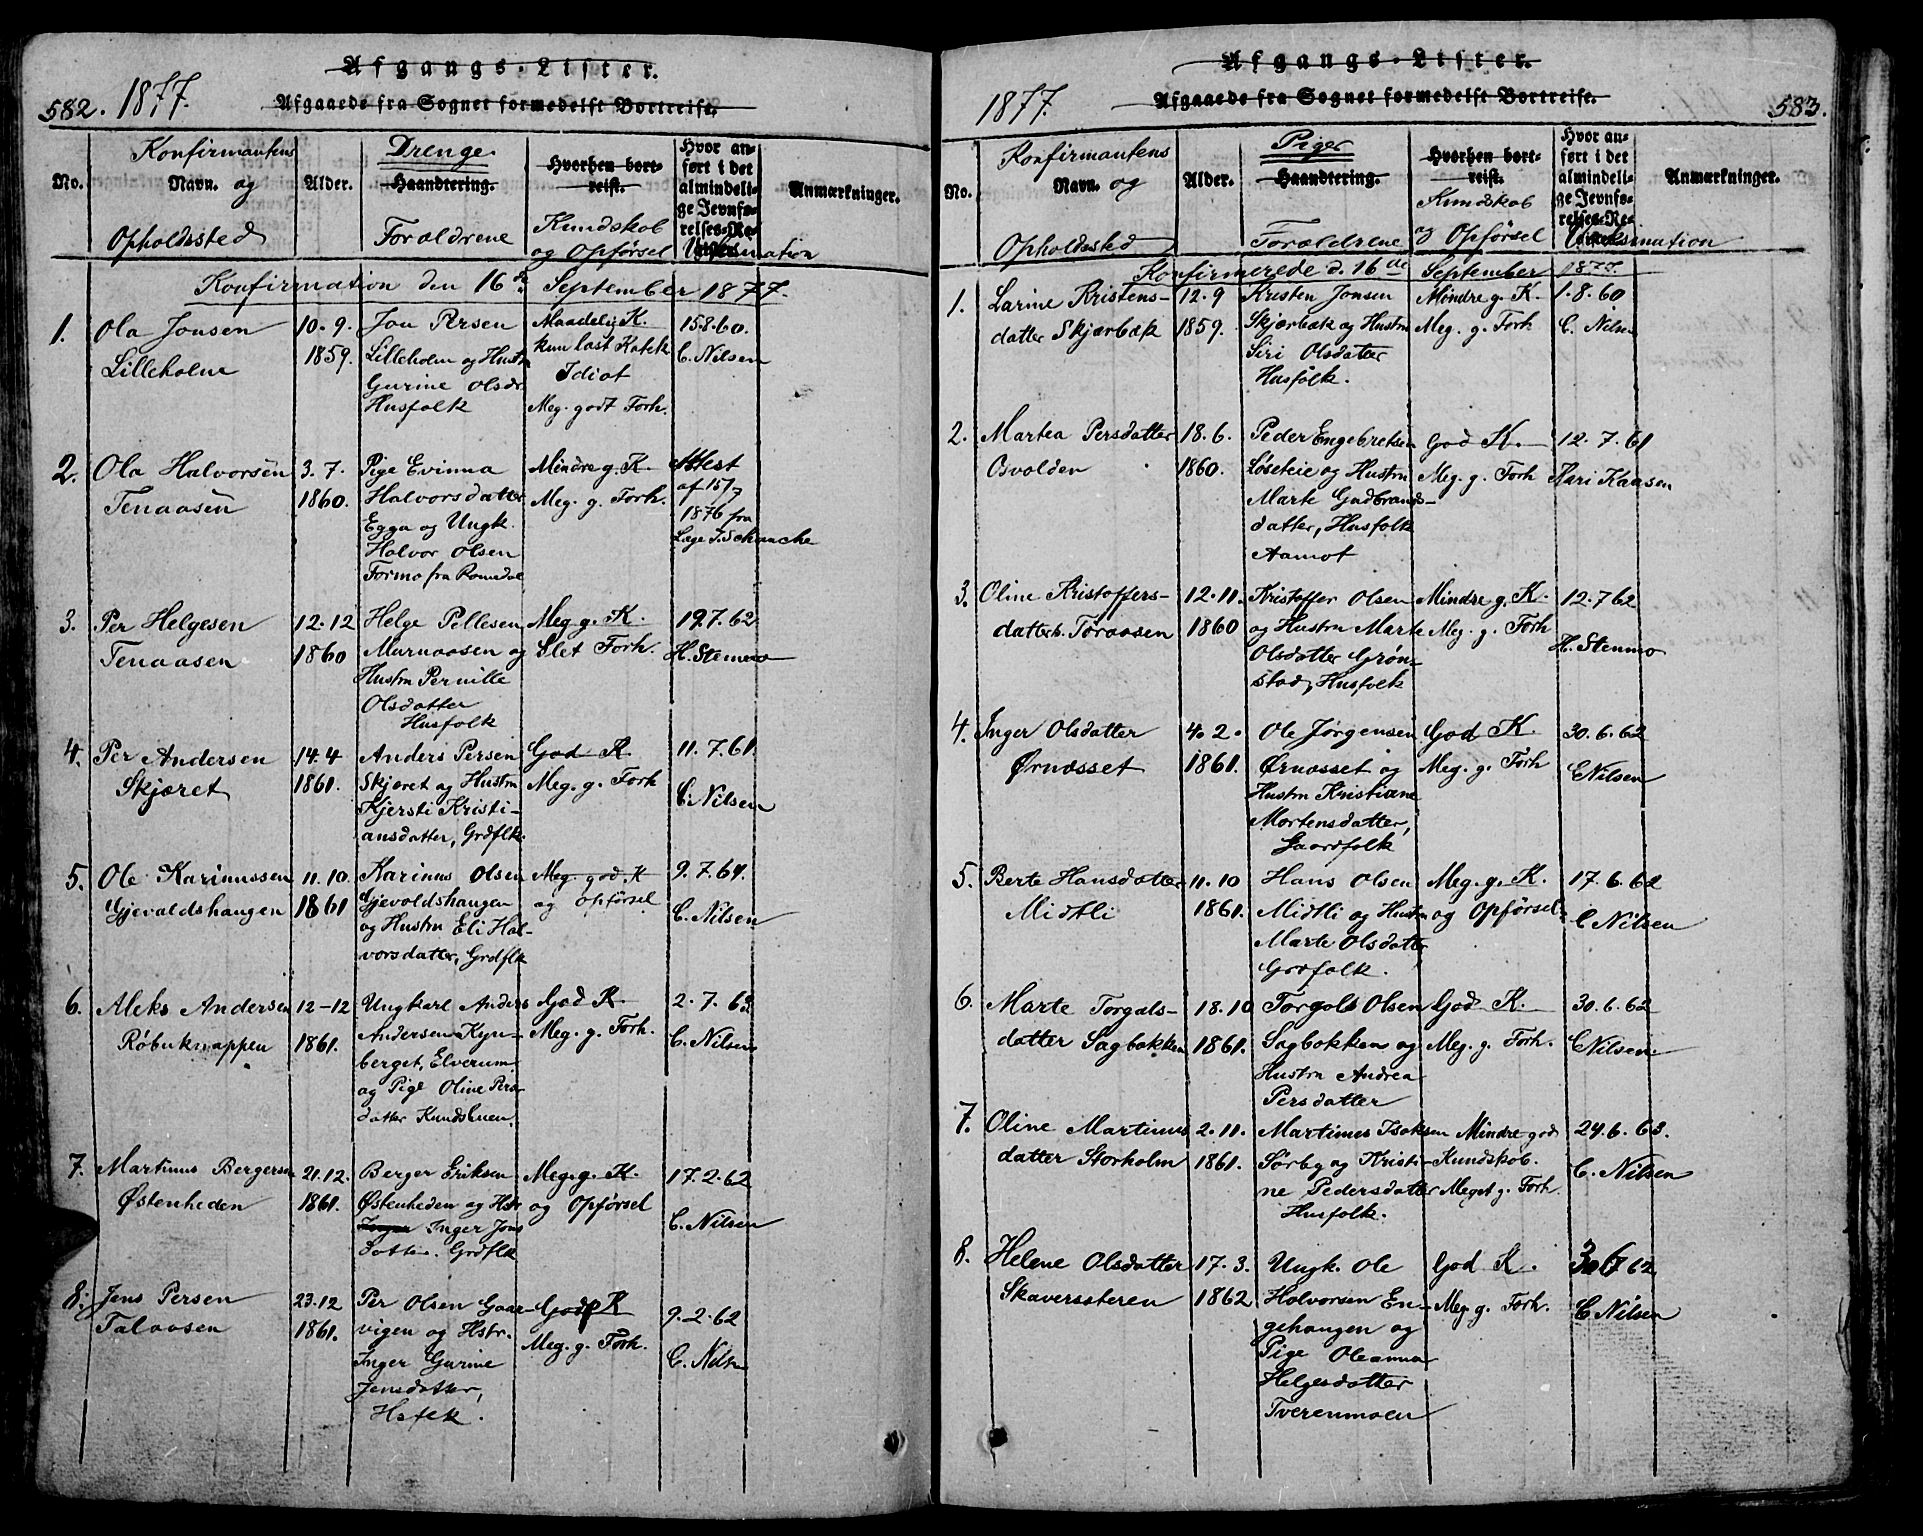 Afgangs-Lister.
582. 1877. Afgaaede fra Sognet formedelst Bortreise.
No. Konfirmantens Navn. og Opholdssted
Alder.
Drenge
Haandtering.
Forældrene
Hvorhen bort-
reist.
Kundskab
og Opførsel
Hvor an-
ført i det
almindeli-
ge Jevnfø-
relses-Re-
Anmærkninger.
Konfirmation den 16de September 1877.
1. Ola Jonsen
Lilleholne
10. 9.
1859.
Jon Persen
Lilleholm og Hustru
Gurine Olsdr.
Husfolk
Maadelig K.
kun læst Katek
Idiot
Meg. godt Forh.
15.8.60.
C. Nilsen
2. Ola Halvorsen
Tenaasen
3. 7.
1860.
Pige Evinna
Halvorsdatter
Egga og Ungk.
Halvor Olsen
Formo fra Romedal
Mindre g. K.
Meg. g. Forh.
Attest
af 15/7
1876 fra
Læge J. Schanche
3. Per Helgesen
Tenaasen
12. 12
1860
Helge Pellesen
Murnaasen og
Hustru Pernille
Olsdatter
Husfolk
Meg g. K.
Slet Forh.
19.7.62
H. Stenmo
4. Per Andersen
Skjæret
14. 4
1861.
Anders Persen
Skjæret og Hustru
Kjersti Kristi-
ansdatter, Grdflk.
God K.
Meg. g. Forh
11. 7. 61.
C. Nilsen
5. Ole Karinussen
Gjevaldshaugen
11. 10.
1861
Karinus Olsen
Gjevaldshaugen
og Hustru Eli Hal-
vorsdatter, Grdflk
Meg. god. K
og Opførsel
9. 7. 64.
C. Nilsen
6. Aleks Andersen
Røbuknappen
12-12
1861.
Ungkarl Anders
Andersen Kyn-
berget, Elverum
og Pige Oline Pers-
datter Kundsbuen.
God K.
Meg. g. Forh.
2. 7. 63
C. Nilsen
7. Martinus Bergersen
Østenheden
21. 12.
1861.
Berger Eriksen
Østenheden og Hstr
Inger Jons
datter. Grdflk
Meg. g. K.
og Opførsel
17. 2. 62
C. Nilsen
8. Jens Persen
Talaasen
23. 12
1861.
Per Olsen Gaar-
vigen og Hstr.
Inger Gurine
Jensdatter,
Hsfolk.
God K
Meg. g. Forh.
9. 2. 62
C. Nilsen
Afgangs-Lister.
1877. Afgaaede fra Sognet formedelst Bortreise. 583.
No. Konfirmantens Navn. og Opholdssted
Alder.
Piger
Haandtering.
Forældrene
Hvorhen bort-
reist.
Kundskab
og Opførsel
Hvor an-
ført i det
almindeli-
ge Jevnfø-
relses-Re-
Anmærkninger.
Konfirmerede d. 16de September 1877.
1. Larine Kristens-
datter Skjærbæk
12. 9
1859.
Kristen Jonsen
Skjærbæk og Hustru
Siri Olsdatter
Husfolk.
Mindre g. K.
Meg. g. Forh
1. 8. 60
C. Nilsen
2. Martea Persdatter
Osvolden
18. 6.
1860.
Peder Engebretsen
Løseteie og Hustru
Marte Gudbrands-
datter, Husfolk
Aamot
God K.
Meg. g. Forh
12. 7. 61
Kari Kaasen
3. Oline Kristoffers-
datter Toraasen
12. 11.
1860
Kristoffer Olsen
og Hustru Marte
Olsdatter Grøn-
stad, Husfolk
Mindre g. K.
Meg. g. Forh
12. 7 62
H. Stenmo
4. Inger Olsdatter
Ørnæsset
4. 2.
1861.
Ole Jørgensen
Ørnæsset og
Hustru Kristiane
Mortensdatter,
Gaardfolk
God K.
Meg. g. Forh
30. 6. 62
C Nilsen
5. Berte Hansdatter
Midtli
11. 10
1861.
Hans Olsen
Midtli og Hustru
Marte Olsdatter
Grdfolk.
Meg. g. K.
og Opførsel
17. 6. 62
C Nilsen
6. Marte Torgals-
datter Sagbakken
18. 10
1861.
Torgals Olsen
Sagbakken og
Hustru Andrea
Persdatter
God K.
Meg. g. Forh.
30. 6. 62
C Nilsen.
7. Oline Martinus
datter Storholm
2. 11.
1861.
Martinus Isaksen
Sørby og Kristi-
ne Pedersdatter
Husfolk.
Mindre god
Kundskab.
Meget g. Forh.
24. 6. 63.
C. Nilsen
8. Helene Olsdatter
Skaversæteren
17. 3.
1862
Ungk. Ole
Halvorsen En-
gehaugen og
Pige Oleanna
Helgesdatter
Tverenmoen
God K.
Meg. g. Forh.
30 6 62
C Nilsen